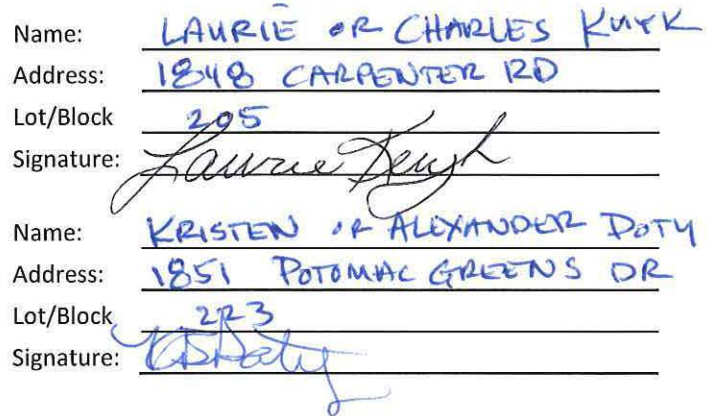 Name: LAURIE OR CHARLES KUYK
Address: 1848 CARPENTER RD
Lot/Block 205
Signature: Laurie Kuyk
Name: KRISTEN OR ALEXANDER DOTY
Address: 1851 POTOMAC GREENS DR
Lot/Block 223
Signature: KDDoty